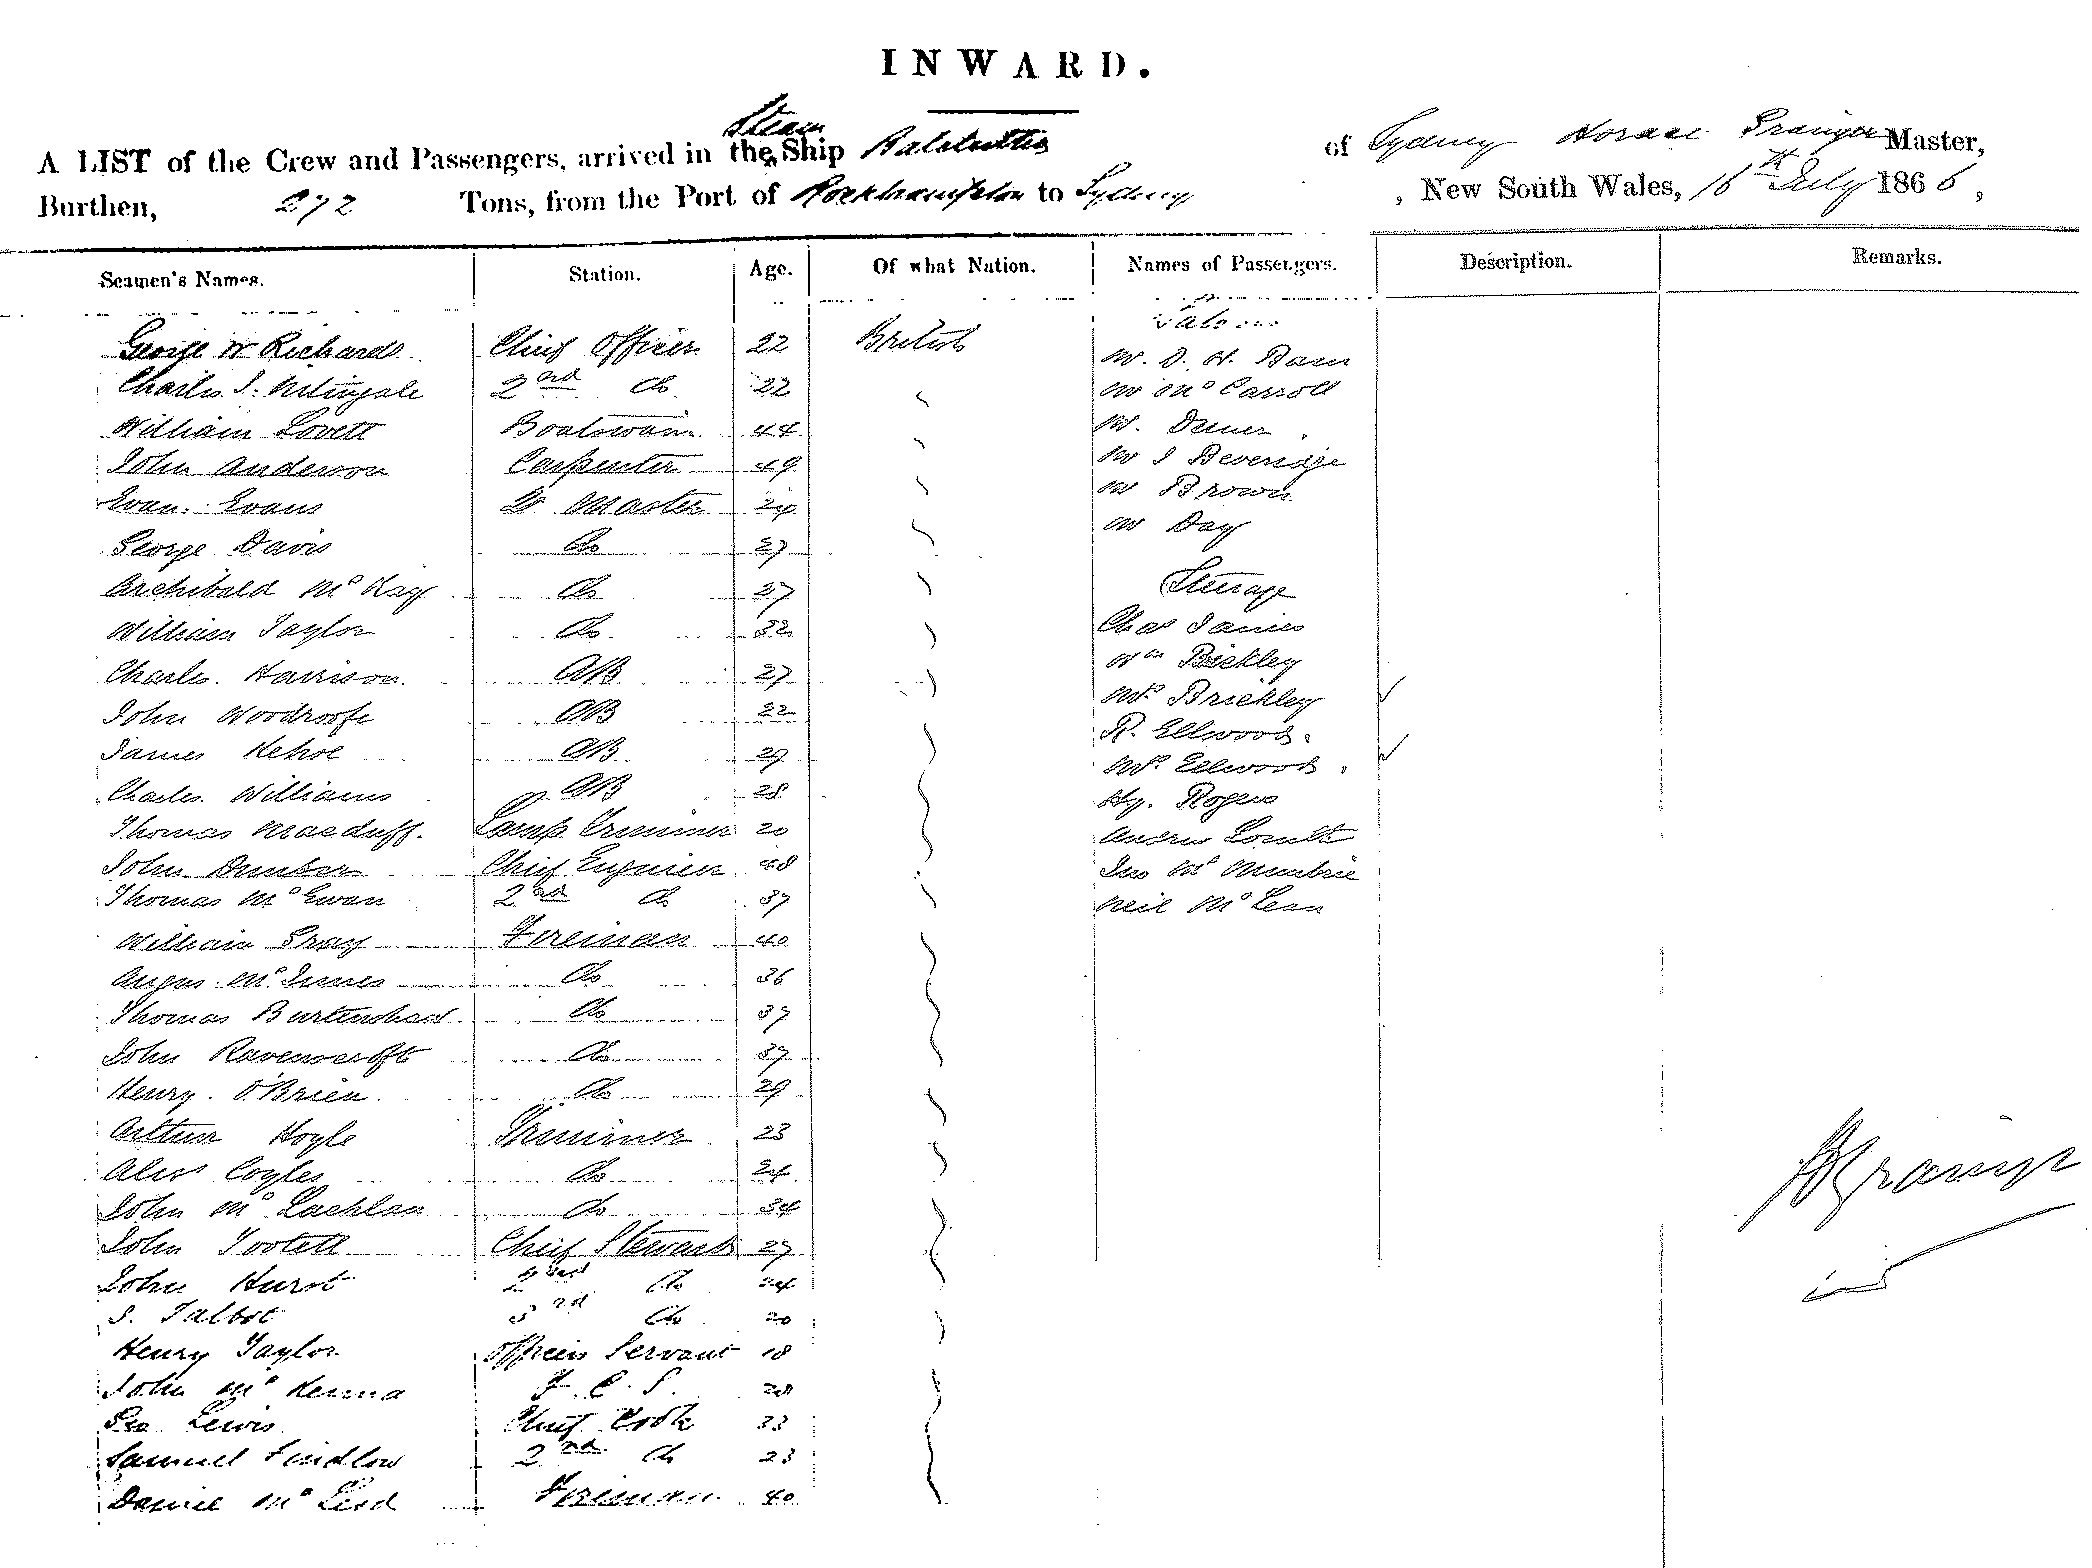 INWARD.
A LIST of the Crew and Passengers, arrived in the Steam Ship of Sydney Horace Grainger Master,
Burthen, 272 Tons, from the Port of Rockhampton to Sydney, New South Wales, 16th July 1866,
Seamen's Names. Station. Age. Of what Nation. Names of Passengers. Description. Remarks.
Saloon
George W Richards Chief Officer 22 British
Charles J. Nitingale 2nd Do 22
William Lovett Boatswain 44
John Anderson Carpenter 49
Evan Evans Qr Master 24
George Davis Do 27
Archibald McKay Do 27
William Taylor Do 32
Charles Harrison AB 27
John Woodroofe AB 22
James Kehoe AB 29
Charles Williams AB 28
Thomas Macduff. Lamp Trimmer 20
John Dunbar Chief Engineer 48
Thomas McEwan 2nd Do 37
William Gray Fireman 40
Angus McInnes Do 36
Thomas Burtenshaw Do 37
John Ravenscroft Do 37
Henry O'Brien Do 29
Arthur Hoyle Trimmer 23
Alexr Coyles Do 24
John McLachlan Do 34
John Tootell Chief Steward 27
John Hurst 2nd Do 24
S. Talbot 3rd Do 20
Henry Taylor Officers Servant 18
John McKenna F. C. S. 28
Geo Lewis Chief Cook 33
Samuel Findlow 2nd Do 23
Daniel McLeod Fireman 40
Mr McCarroll
Mr J Beveridge
Mr Brown
Mr Day
Steerage
Chas James
Wm Bickley
Mrs Brickley
R. Ellwood
Mrs Ellwood
Hy. Rogers
Andrew
Neil McLean
H Grainger